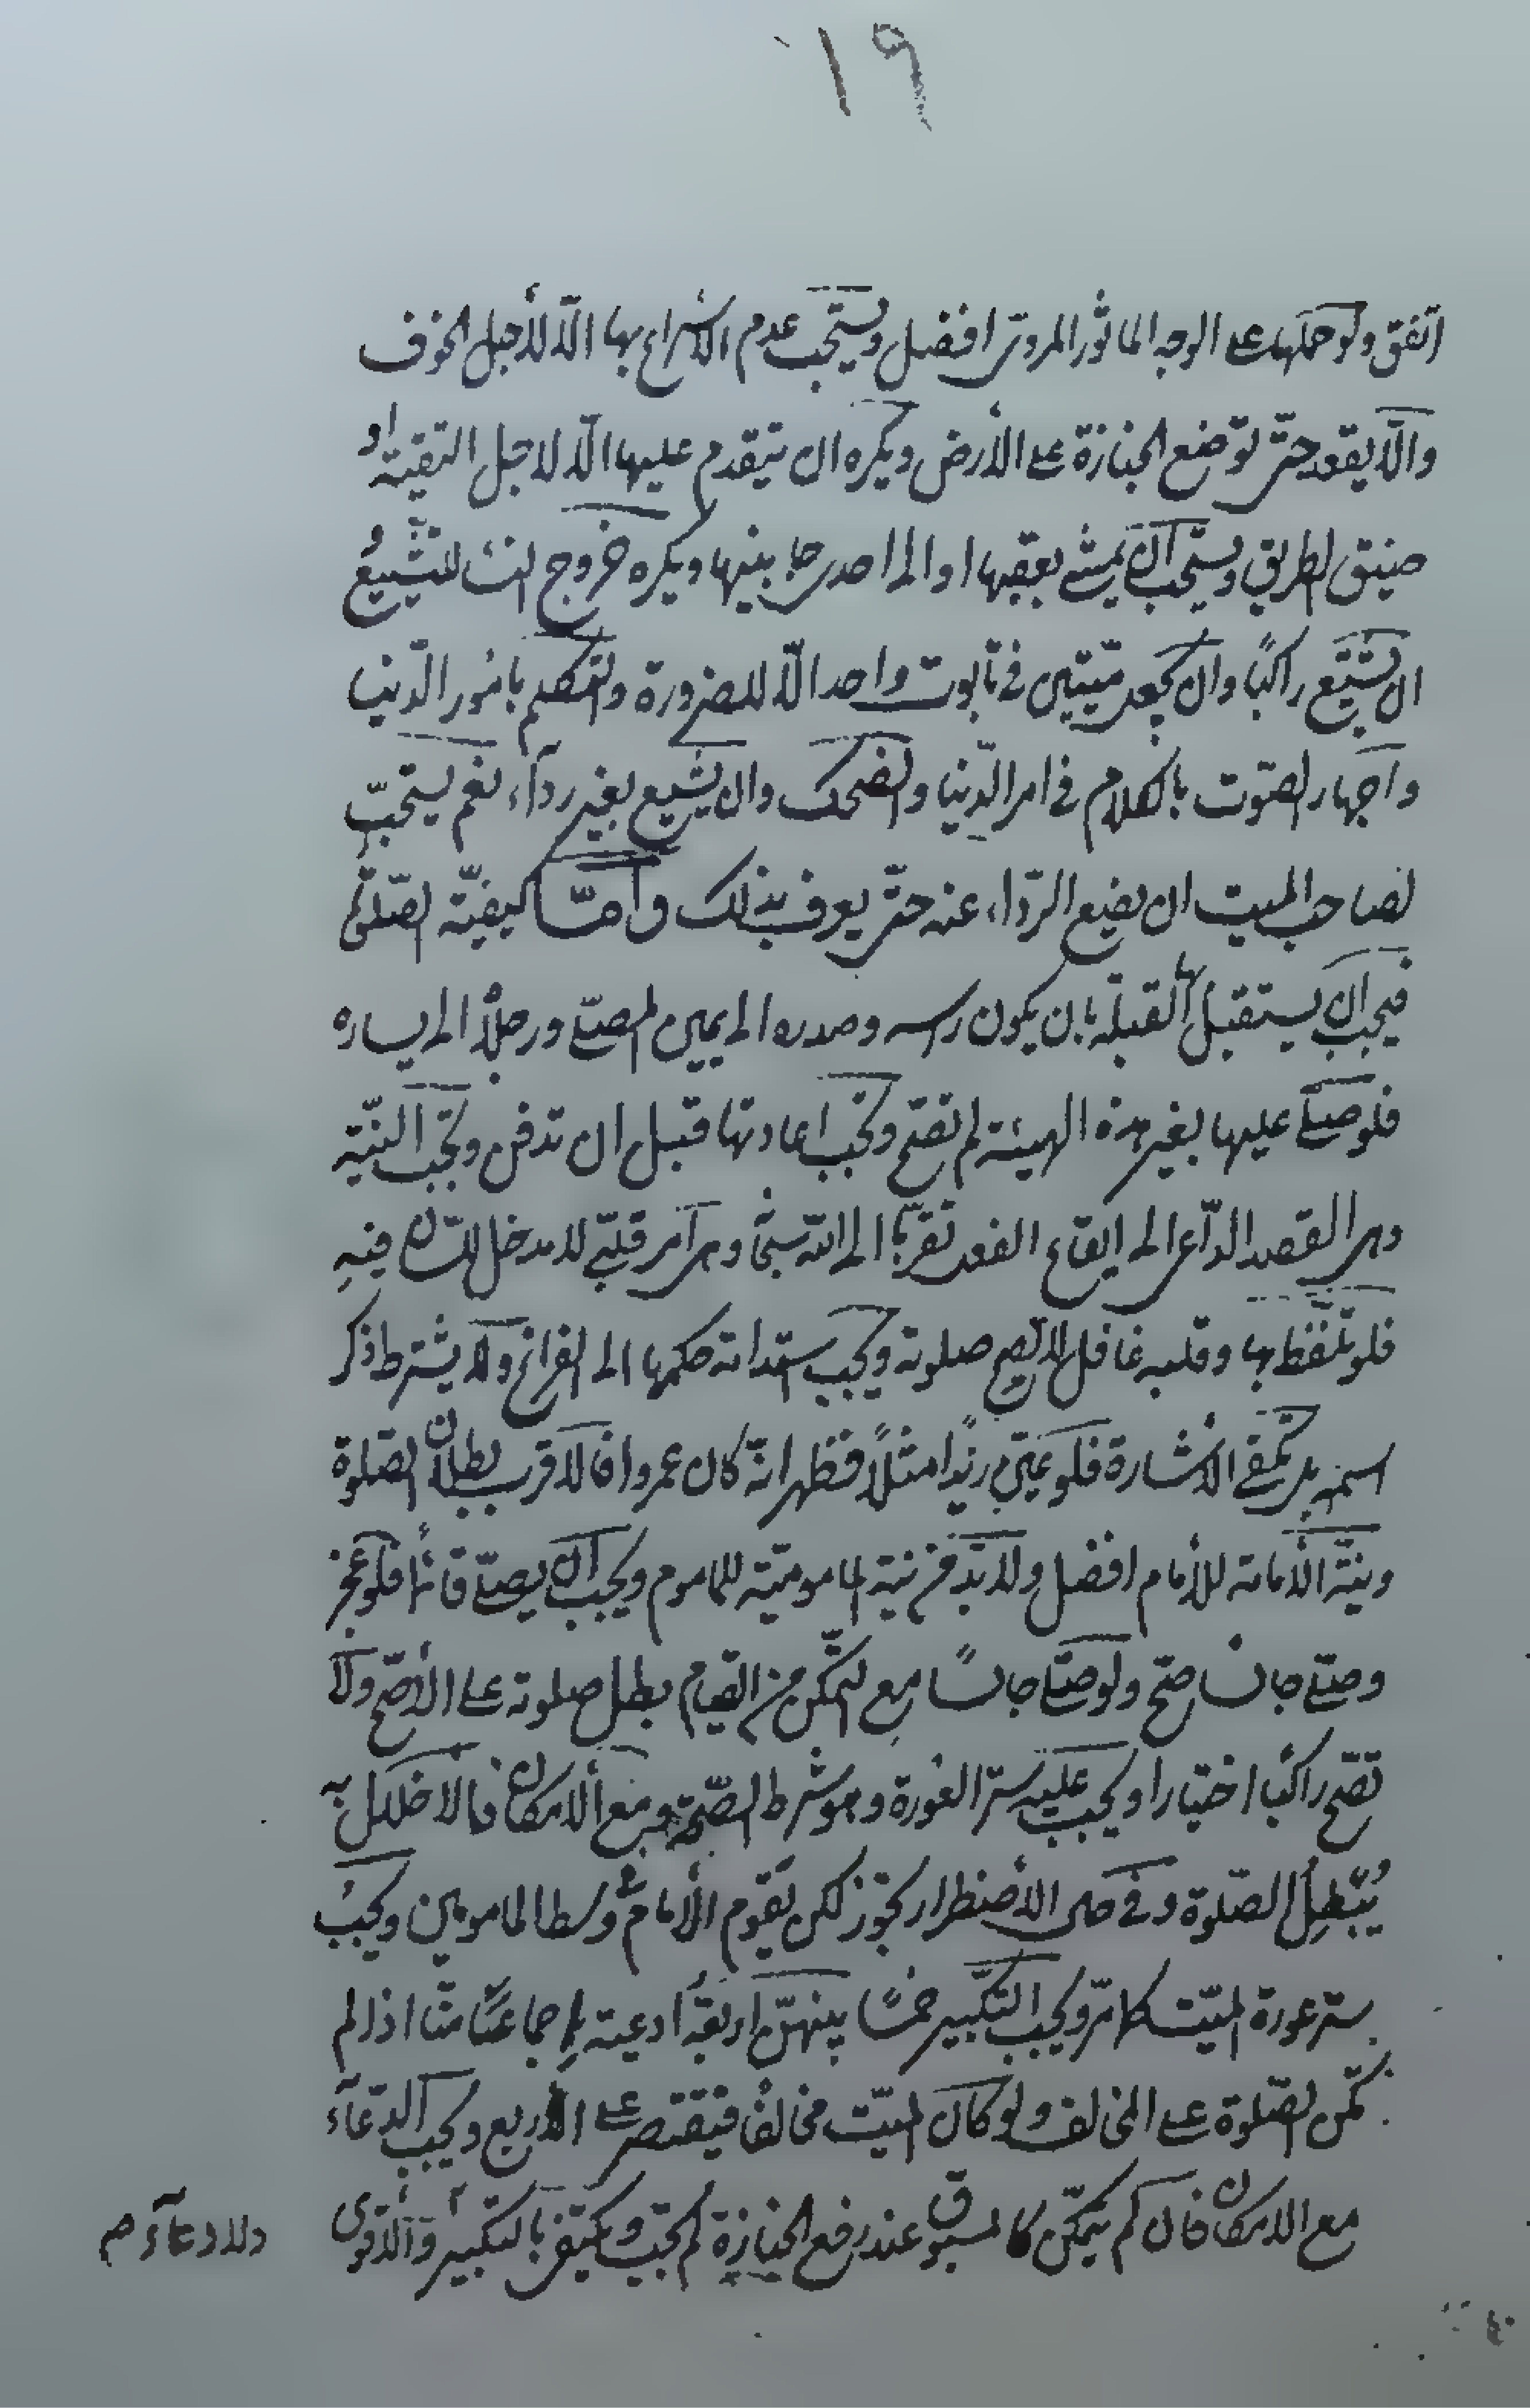 ١٩
اتفق ولو حملها على الوجه المأثور المروي افضل ويستحب عدم الاسراع بها الّا لأجل الخوف
والّا يقعد حتّى توضع الجنازة على الأرض ويكره ان يتقدم عليها الّا لاجل التقية او
ضيق الطريق ويستحب ان يمشى بعقبها او الى احد جانبيها ويكره خروج النساء للتشييع
ان يشيّع راكبًا وان يجعل ميّتين في تابوت واحد الّا للضرورة والتكلم بامور الدّنيا
واجهار الصّوت بالكلام في امر الدّنيا والضحك وان يشيع بغير ردآء نعم يستحبّ
لصاحب الميت ان يضع الرّداء عنه حتّى يعرف بذلك وامّا كيفيّة الصّلوة
فيجب ان يستقبل بها القبلة بان يكون راسه وصدره الى يمين المصلّي ورجلاه الى يساره
فلو صلّى عليها بغير هذه الهيئة لم تصحّ وتجب اعادتها قبل ان تدفن وتجب النيّة
وهي القصد الدّاعي الى ايقاع الفعل تقربّا الى الله سبحانه وهي امر قلبيّ لا مدخل للّسان فيه
فلو تلفّظ بها وقلبه غافل لا تصح صلوته ويجب استدامة حكمها الى الفراغ ولا يشترط ذكر
اسمه بل تكفي الاشارة فلو عيّن زيدًا مثلًا فظهر انّه كان عمروا فالاقرب بطلان الصّلوة
ونيّة الأمامة للأمام افضل ولا بدّ من نية المامومّية للماموم ويجب ان يصلّي قائمًا فلو عجز
وصلّى جالسا صحّ ولو صلّى جالسًا مع التمكّن من القيام بطل صلوته على الأصحّ ولا
تصّح راكبًا اختيارا ويجب عليه ستر العورة وهو شرط الصّحة ومع الامكان فالاخلال به
يُبْطِلُ الصّلوة وفي حال الأضطرار تجوز لكن يقوم الأمام وسط المامومين ويجب
ستر عورة الميّت كما مرّ ويجب التكبير خمسًا بينهنّ اربعة ادعية إجماعًا منّا اذا لم
تكن الصّلوة على المخالف ولو كان الميّت مخالفًا فيقتصر على الاربع ويجب الدّعآء
مع الامكان فان لم يتمكّن كالمسبوق عند رفع الجنازة لم تجب ويكتفي بالتكبير والاقوى
دلادعآء م